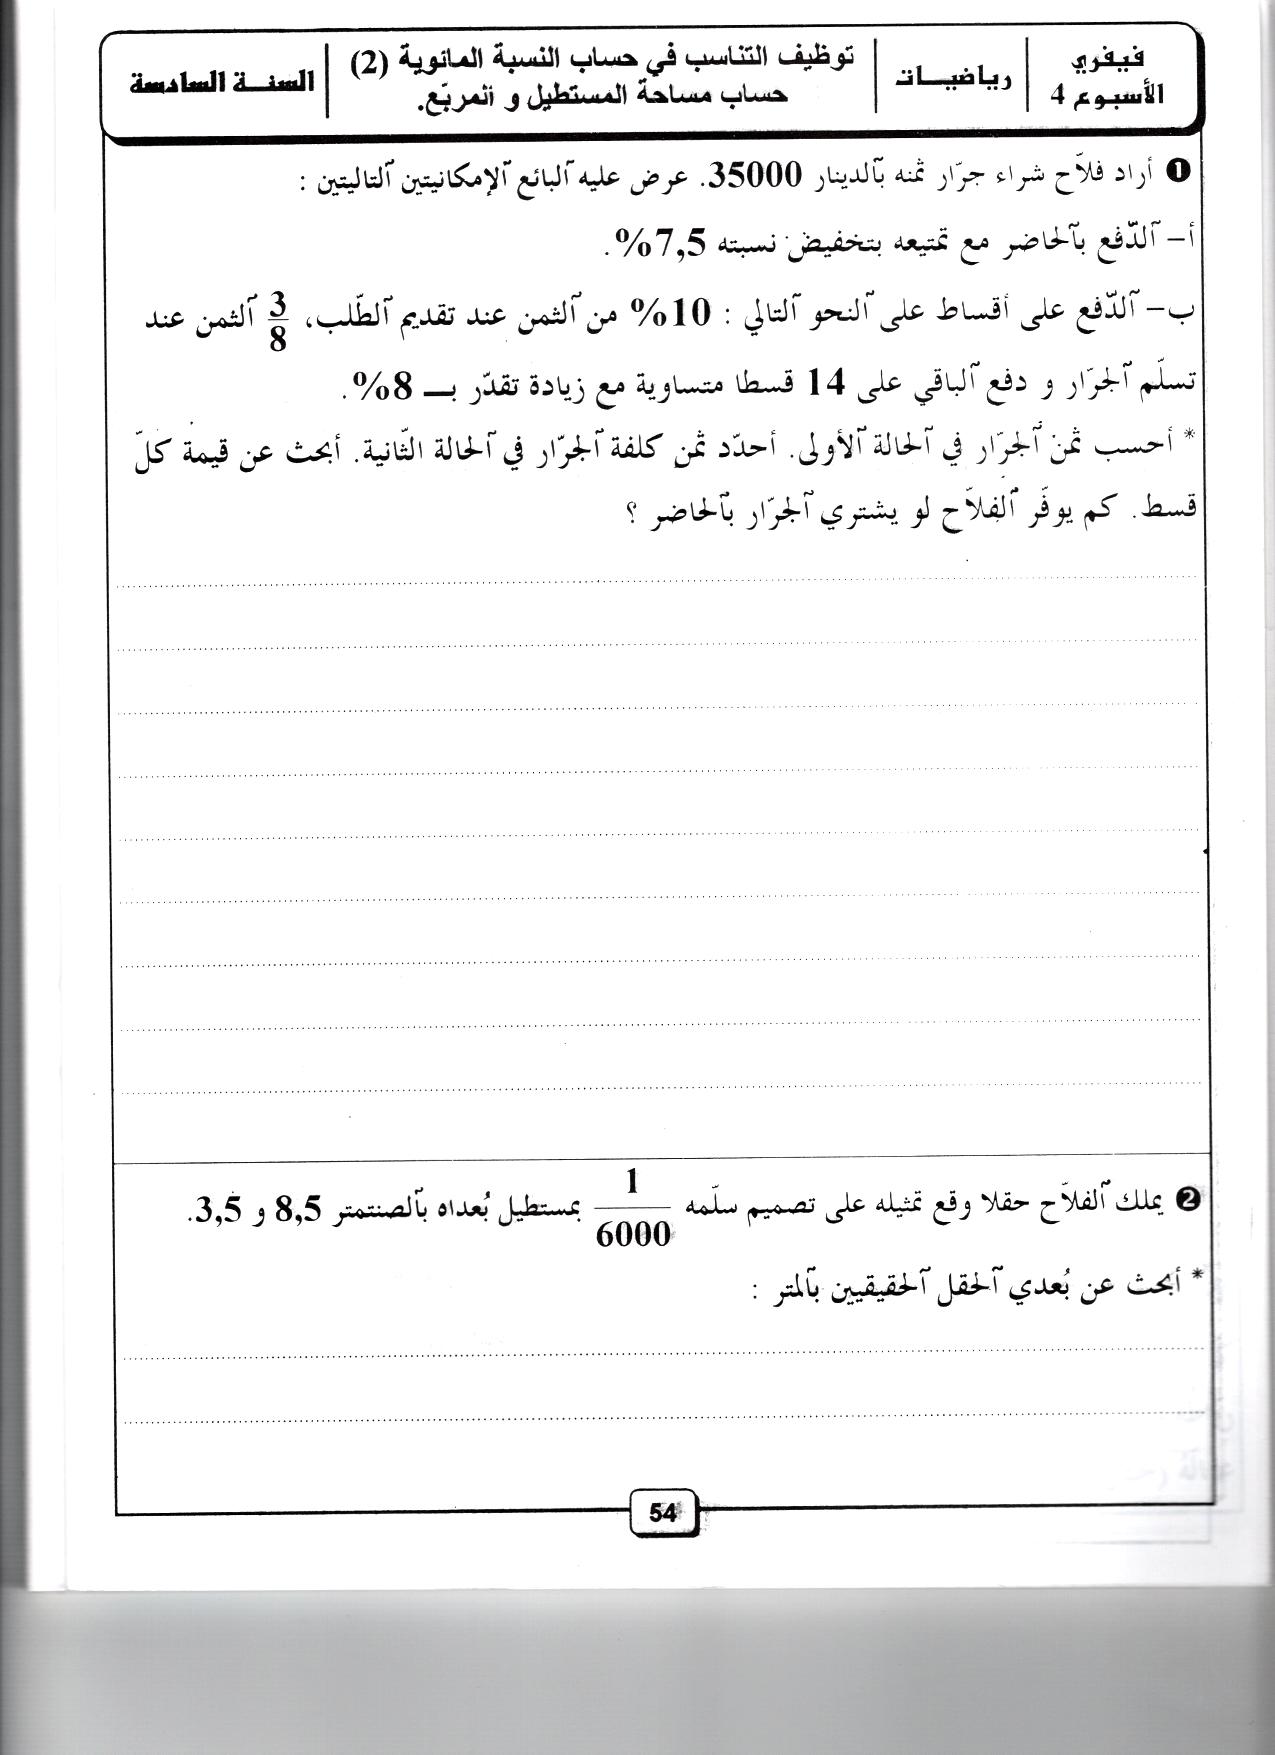 فيفري
الأسبوع 4
رياضيـــات
توظيف التناسب في حساب النسبة المائوية (2)
حساب مساحة المستطيل و المربّع.
السنــة السادسة
❶ أراد فلاّح شراء جرّار ثمنه بٱلدينار 35000. عرض عليه ٱلبائع ٱلإمكانيتين ٱلتاليتين :
أ- ٱلدّفع بٱلحاضر مع تمتيعه بتخفيض نسبته 7,5%.
ب- ٱلدّفع على أقساط على ٱلنحو ٱلتالي : 10% من ٱلثمن عند تقديم ٱلطّلب، 3/8 ٱلثمن عند
تسلّم ٱلجرّار و دفع ٱلباقي على 14 قسطا متساوية مع زيادة تقدّر بـــ 8%.
* أحسب ثمن ٱلجرّار في ٱلحالة ٱلأولى. أحدّد ثمن كلفة ٱلجرّار في ٱلحالة ٱلثّانية. أبحث عن قيمة كلّ
قسط. كم يوفّر ٱلفلاّح لو يشتري ٱلجرّار بٱلحاضر ؟
❷ يملك ٱلفلاّح حقلا وقع تمثيله على تصميم سلّمه 1/6000 بمستطيل بُعداه بٱلصنتمتر 8,5 و 3,5.
* أبحث عن بُعدي ٱلحقل ٱلحقيقيين بٱلمتر :
54